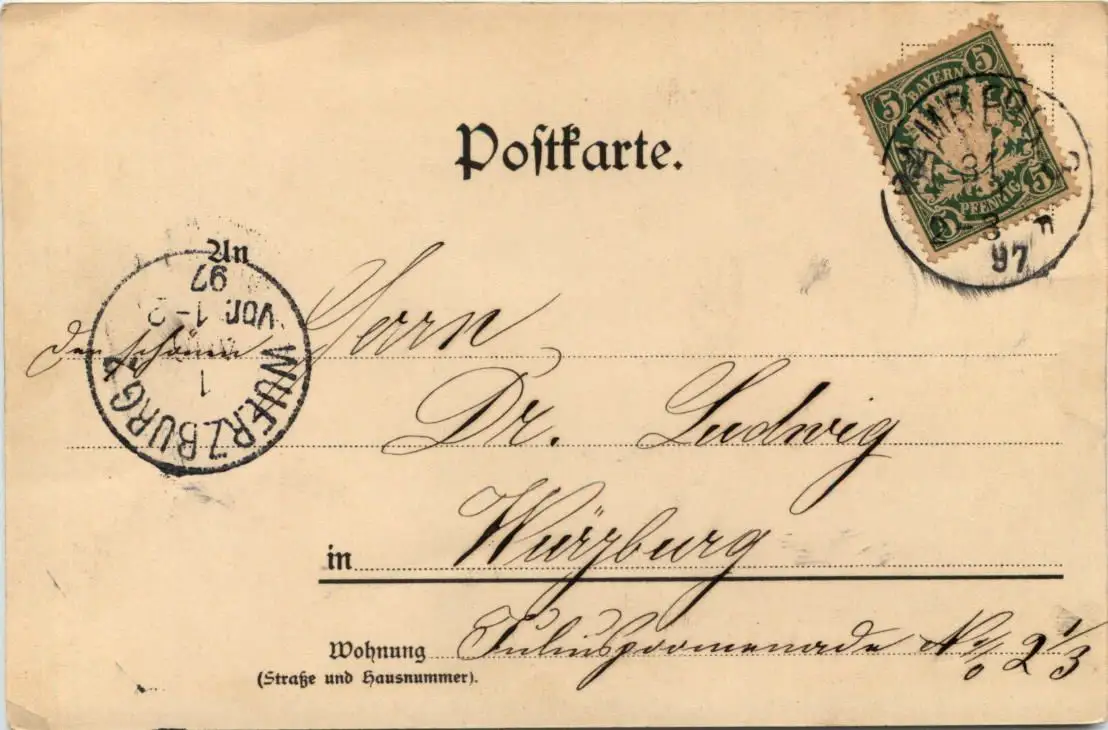 Postkarte.
5 BAYERN 5
5 PFENNIG 5
31
97
An
WUERZBURG 2
1
Vor. 1-2
97
Den schönen Herrn
Dr. Ludwig
in Würzburg
Wohnung Juliuspromenade No 2 1/3
(Straße und Hausnummer).